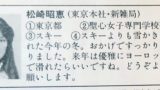 松崎昭恵(東京本社・新雑局)
①東京都 ②聖心女子専門学校
③スキー ④スキーよりも雪かき
された今年の冬。おかげですっかり
りました。来年は優雅にヨーロッ
で滑れたらいいですね。どうぞよ
願いします。